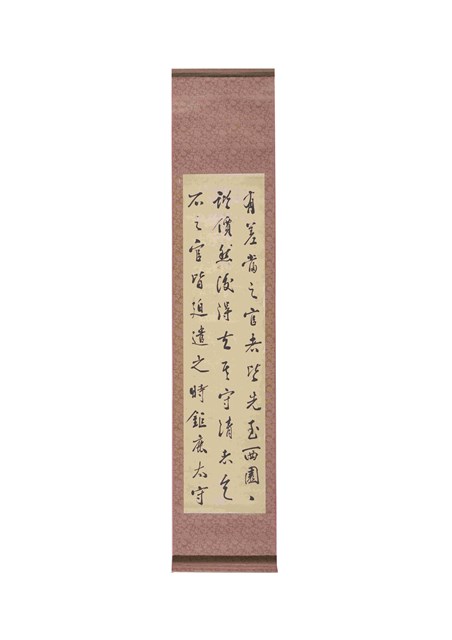 有差當之官者皆先至西園〻
諧價然後得去其守清者乞
不之官皆迫遣之時鉅鹿太守